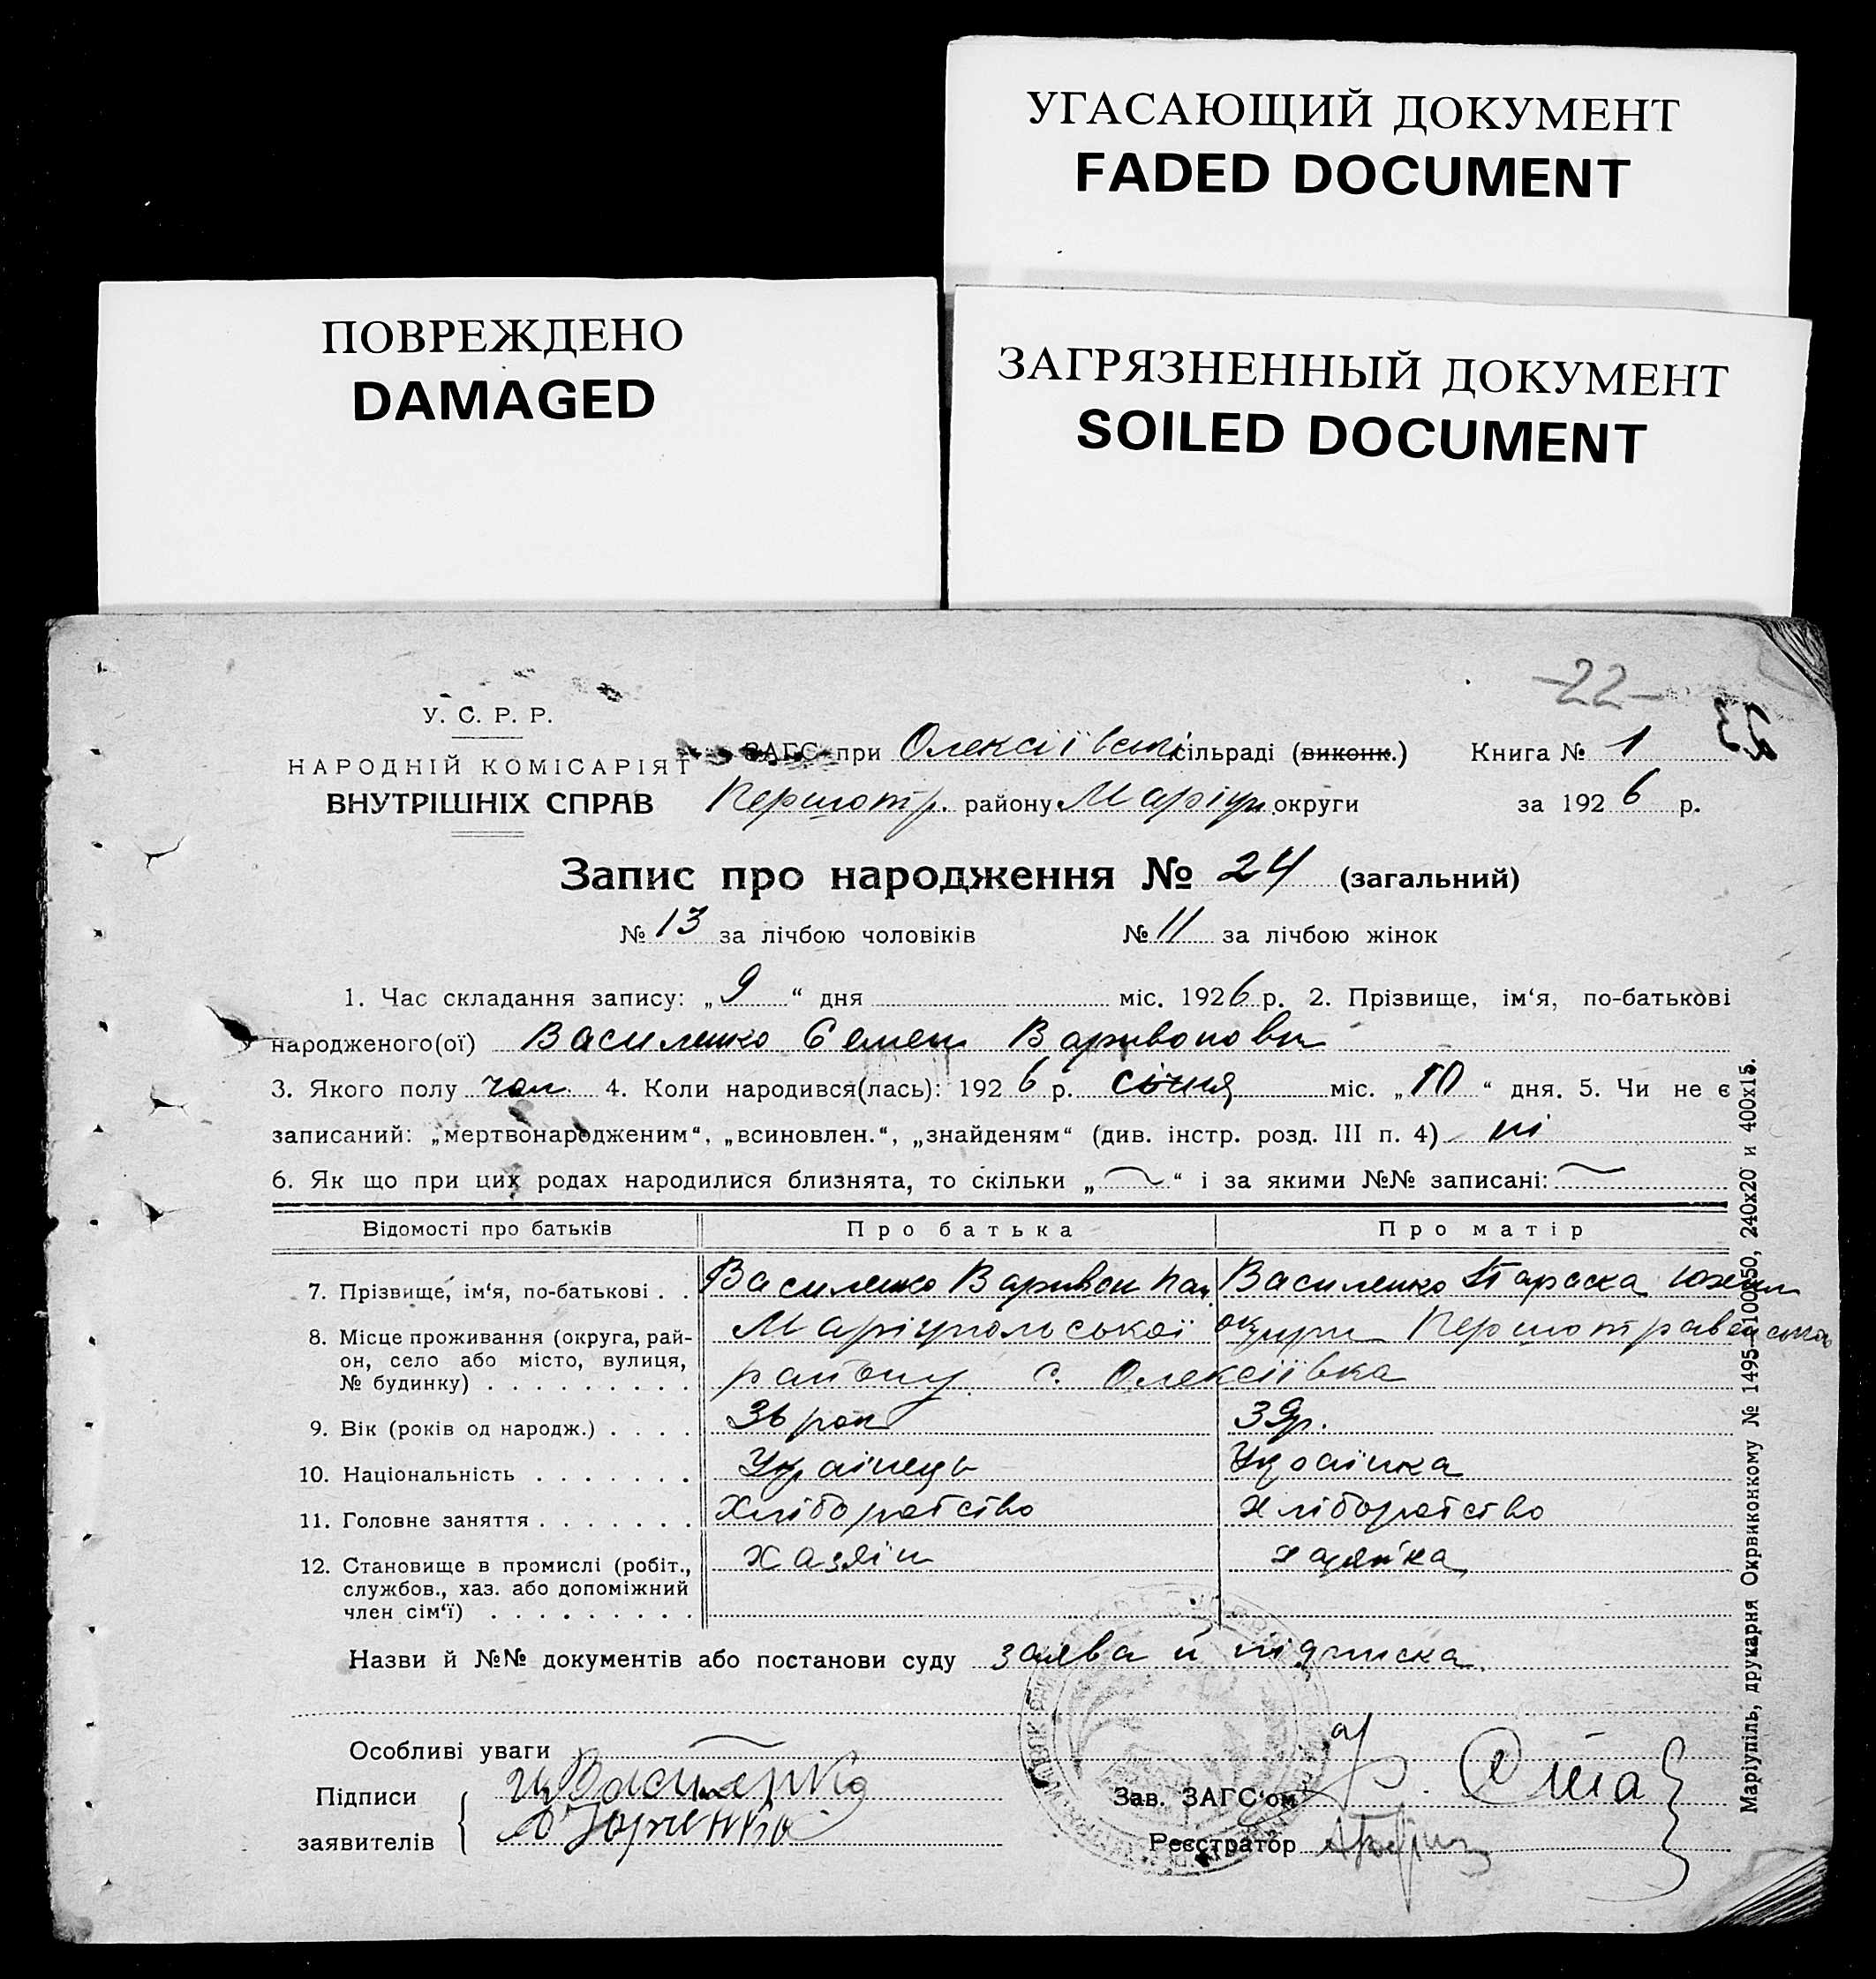 УГАСАЮЩИЙ ДОКУМЕНТ
FADED DOCUMENT
ПОВРЕЖДЕНО
DAMAGED
ЗАГРЯЗНЕННЫЙ ДОКУМЕНТ
SOILED DOCUMENT
-22-
23
У. С. Р. Р.
НАРОДНІЙ КОМІСАРІЯТ
ВНУТРІШНІХ СПРАВ
ЗАГС при Олексіївській сільраді (виконк.) Книга № 1
Першотр. району Маріуп. округи за 1926 р.
Запис про народження № 24 (загальний)
№ 13 за лічбою чоловіків № 11 за лічбою жінок
1. Час складання запису: „9“ дня міс. 1926 р. 2. Прізвище, ім‘я, по-батькові
народженого(ої) Василенко Семен Варивонович
3. Якого полу чол. 4. Коли народився(лась): 1926 р. січня міс. „10“ дня. 5. Чи не є
записаний: „мертвонародженим“, „всиновлен.“, „знайденям“ (див. інстр. розд. III п. 4) ні
6. Як що при цих родах народилися близнята, то скільки „ “ і за якими №№ записані:
Відомості про батьків Про батька Про матір
7. Прізвище, ім‘я, по-батькові . . Василенко Варивон Василенко Параска
8. Місце проживання (округа, рай-
он, село або місто, вулиця,
№ будинку) . . . . . . . . .
Маріупольської округи Першотравенського
району с. Олексіївка
9. Вік (років од народж.) . . . . 36 рок 39 р.
10. Національність . . . . . . . Українець Українка
11. Головне заняття . . . . . . . Хліборобство Хліборобство
12. Становище в промислі (робіт.,
службов., хаз. або допоміжний
член сім‘ї) . . . . . . . . .
Хазяїн Хазяйка
Назви й №№ документів або постанови суду заява й підписка
Особливі уваги
Підписи
заявителів
Василенко
Зав. ЗАГС‘ом
Реєстратор
Маріупіль, друкарня Окрвиконкому № 1495—100х50, 240х20 и 400х15.